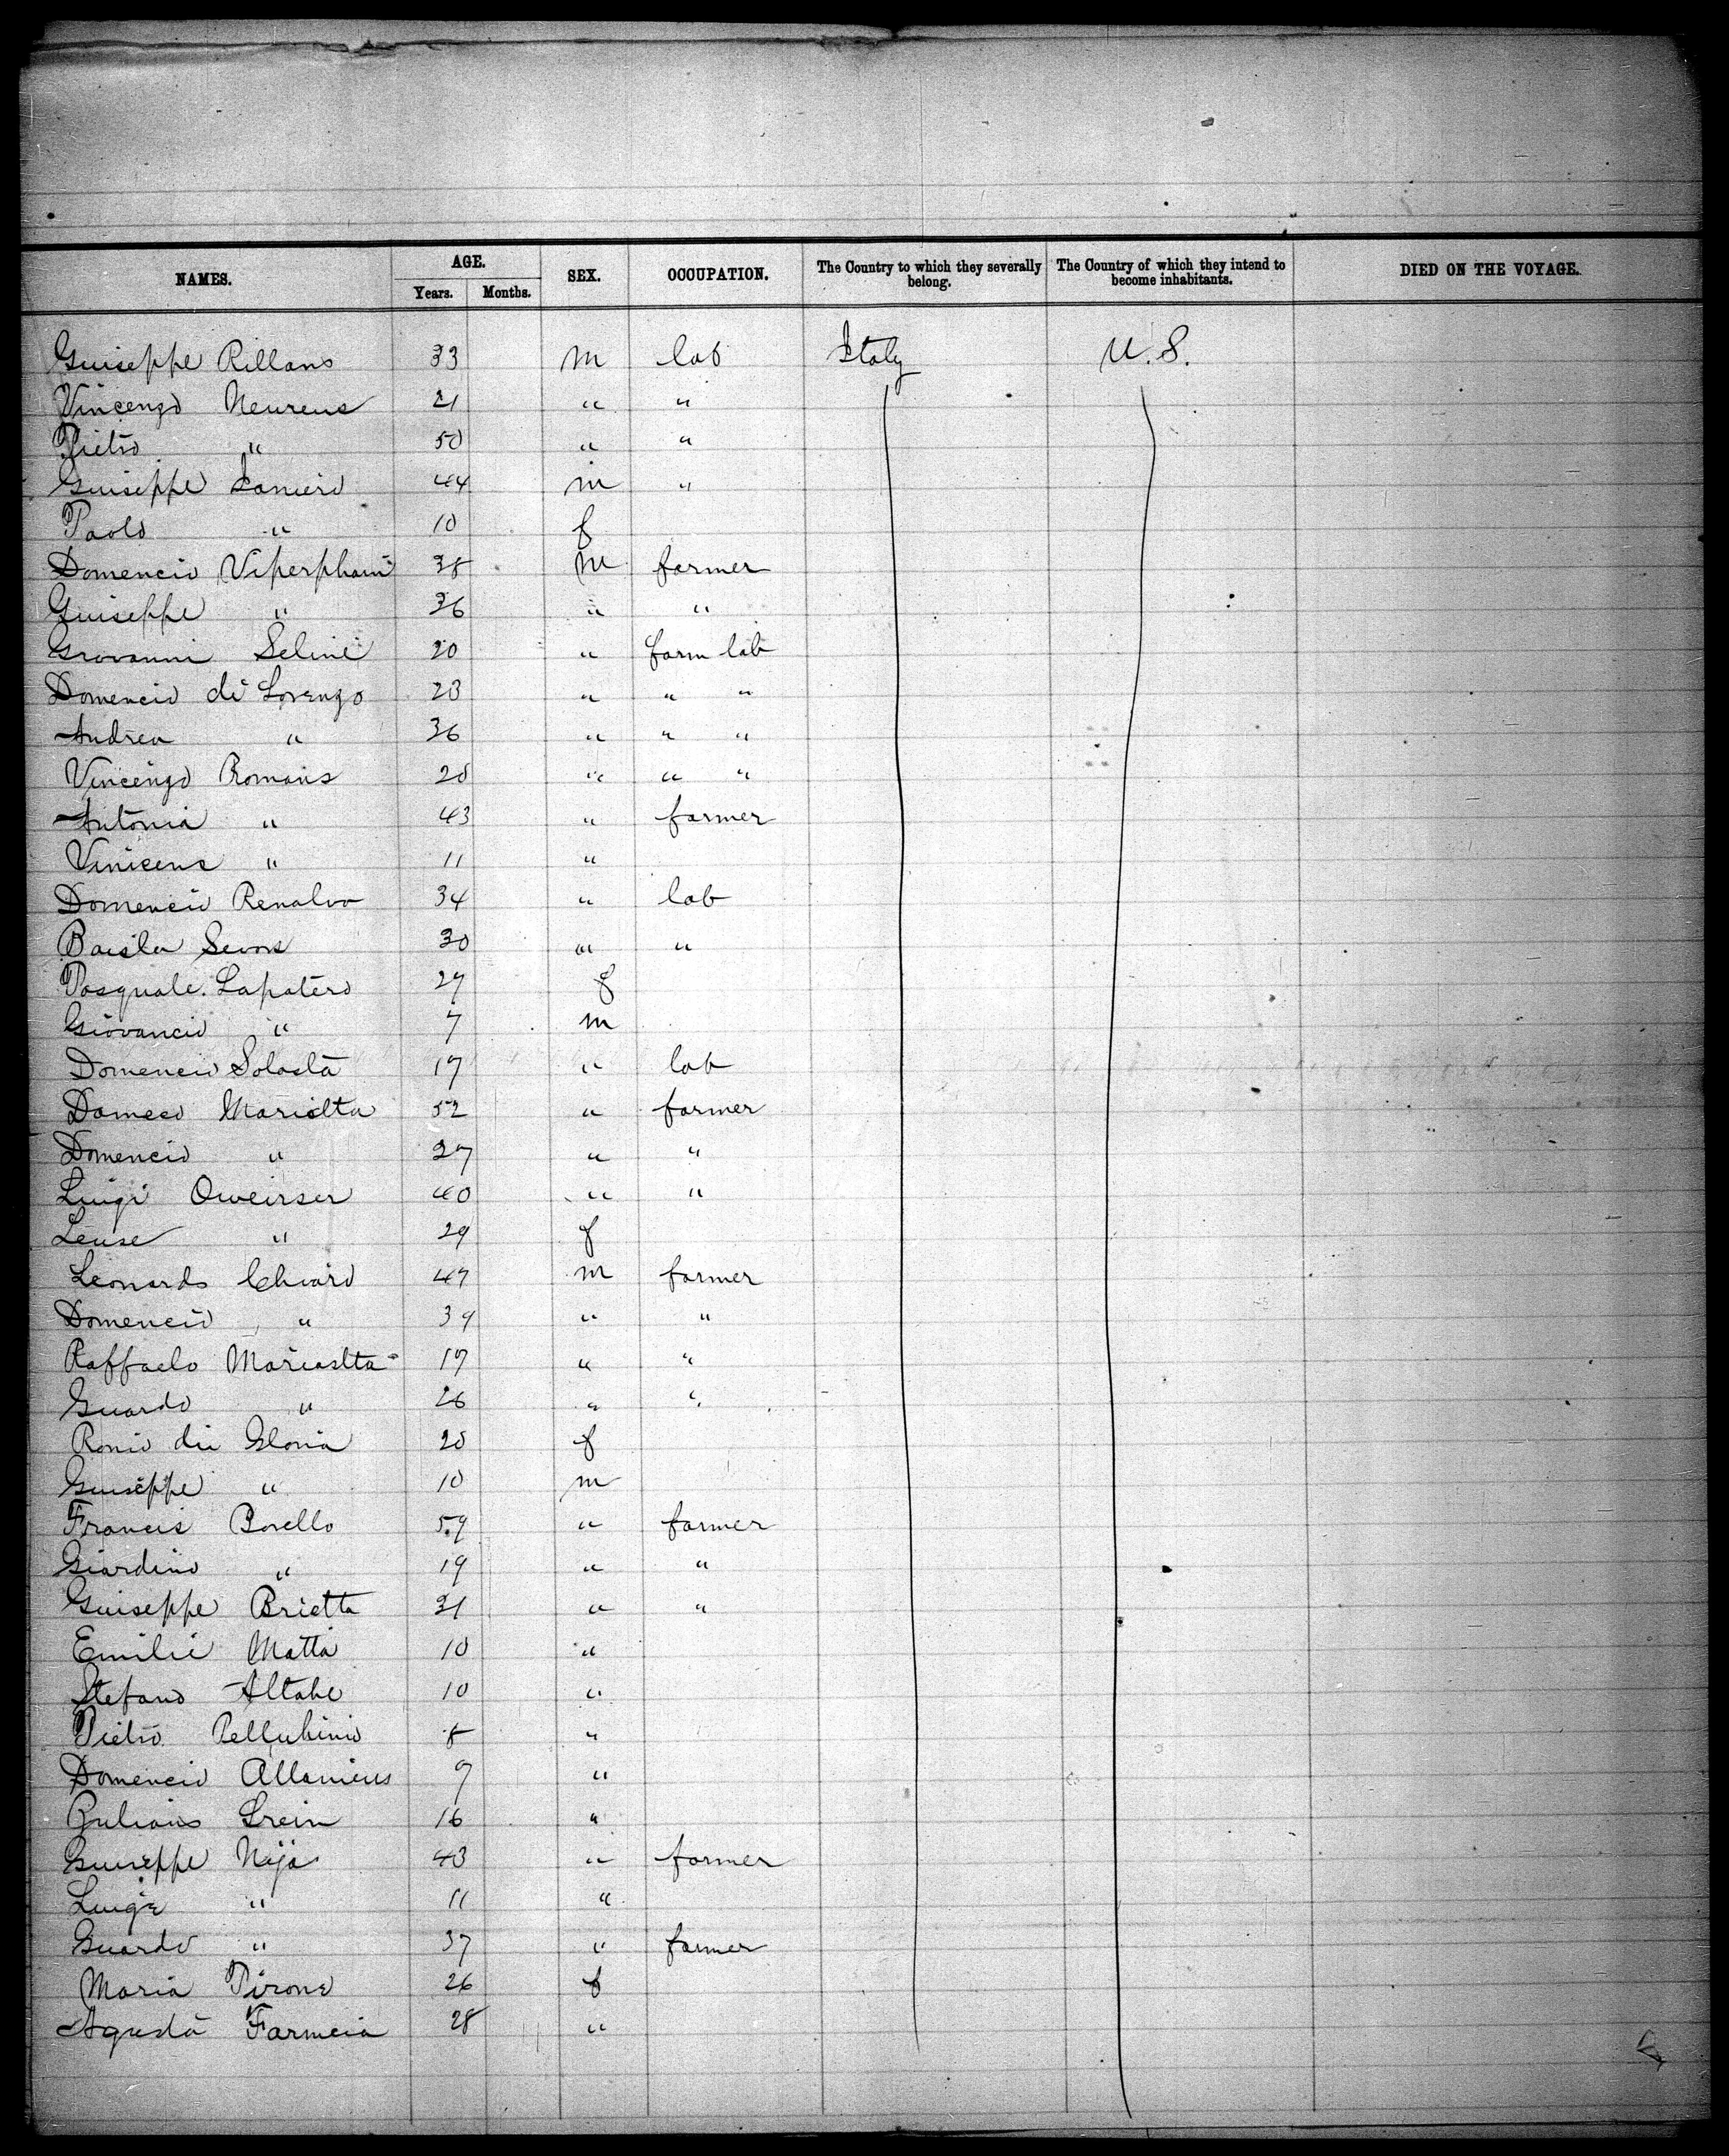 NAMES. AGE. SEX. OCCUPATION. The Country to which they severally belong. The Country of which they intend to become inhabitants. DIED ON THE VOYAGE.
Years. Months.
Guiseppe Rillano 33 m lab Italy U.S.
Vincenzo Neurens 21 " "
Pietro " 50 " "
Guiseppe Lanierd 44 m "
Paolo " 10 f
Domencio Viperphani 38 m farmer
Guiseppe " 36 " "
Giovanni Selini 20 " farm lab
Domencio di Lorenzo 23 " " "
Andrea " 36 " " "
Vincenzo Romans 28 " " "
Antonia " 43 " farmer
Vinicens " 11 "
Domencio Renalvo 34 " lab
Baisla Sevons 30 " "
Pasquale Lapatero 27 f
Giovancio " 7 m
Domencio Solasta 17 " lab
Domeco Mariolta 52 " farmer
Domencio " 27 " "
Luigi Oweirser 40 " "
Leuse " 29 f
Leonardo Chiard 47 m farmer
Domencio " 39 " "
Raffaelo Mariaslta 17 " "
Guardo " 26 " "
Ronio dii Gloria 20 f
Guiseppe " 10 m
Francis Borello 59 " farmer
Giardino " 19 " "
Guiseppe Brietta 31 " "
Emilie Matta 10 "
Stefano Altabe 10 "
Pietro Pellubinio 8 "
Domencio Allanieus 9 "
Guliano Lrein 16 "
Guiseppe Nija 43 " farmer
Luige " 11 "
Guardo " 37 " farmer
Maria Pirone 26 f
Agusta Farmeia 28 "